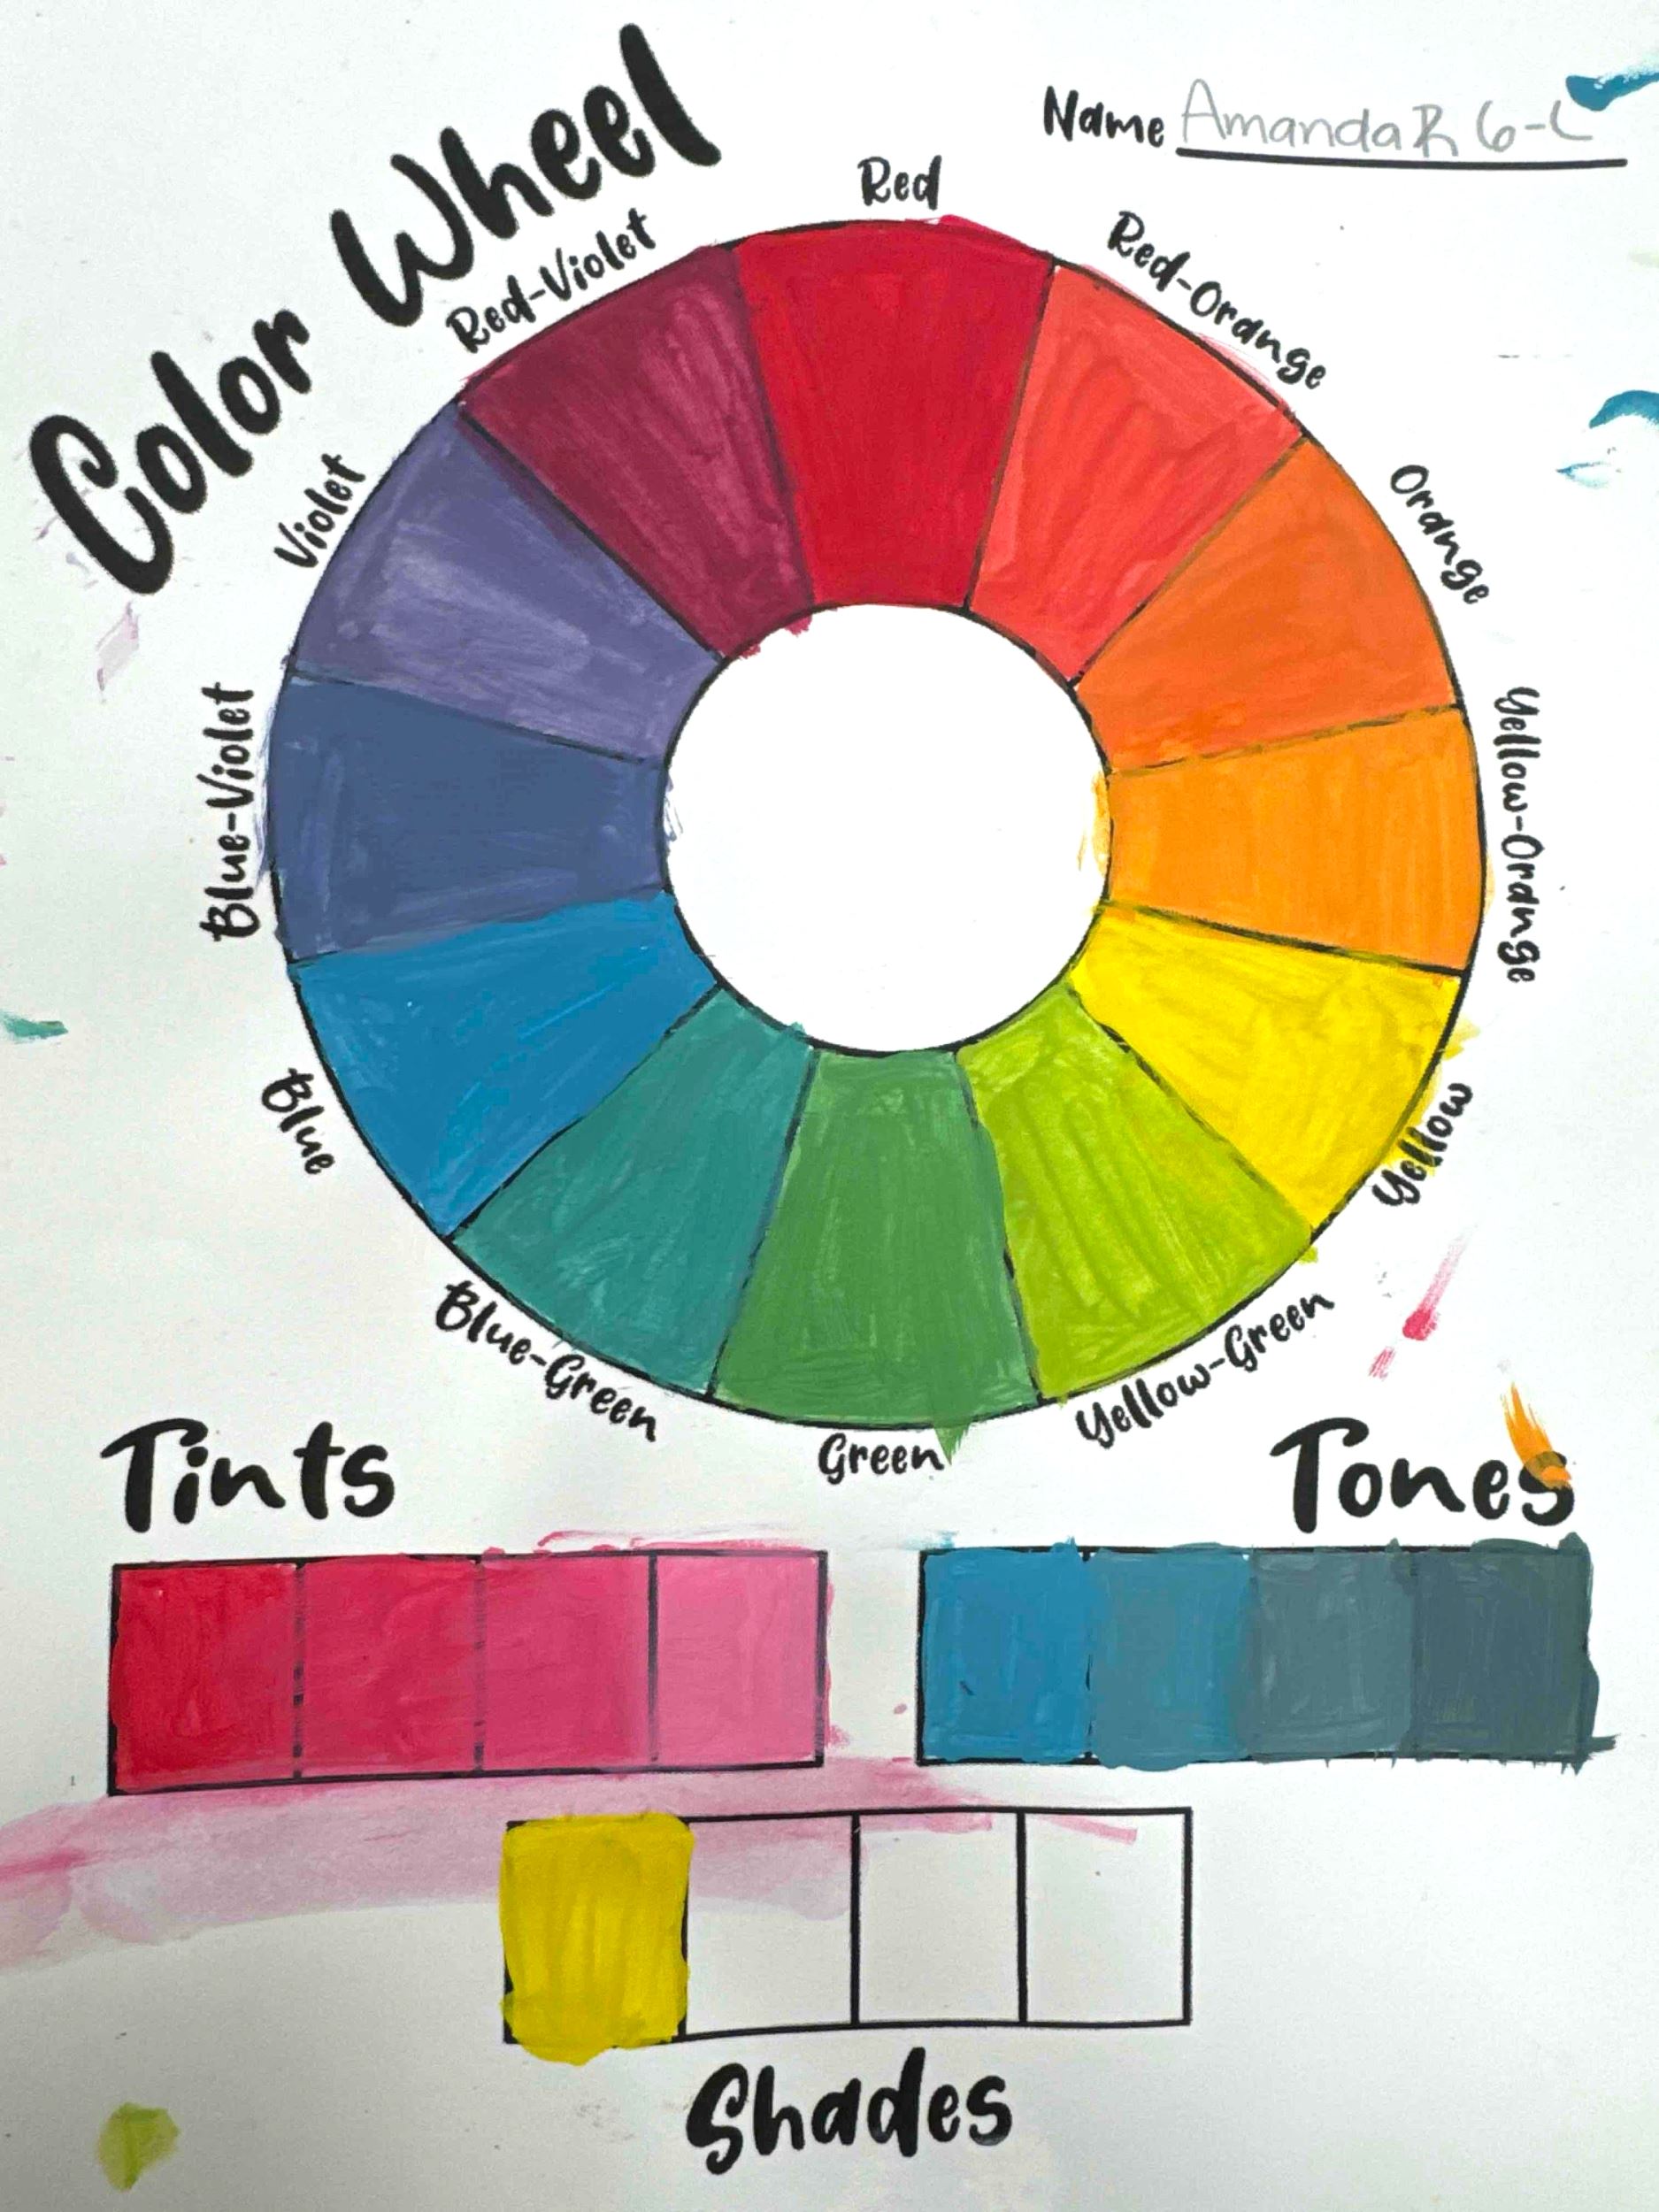 Color Wheel
Name Amanda R 6-L
Red
Red-Orange
Orange
Yellow-Orange
Yellow
Yellow-Green
Green
Blue-Green
Blue
Blue-Violet
Violet
Red-Violet
Tints
Tones
Shades